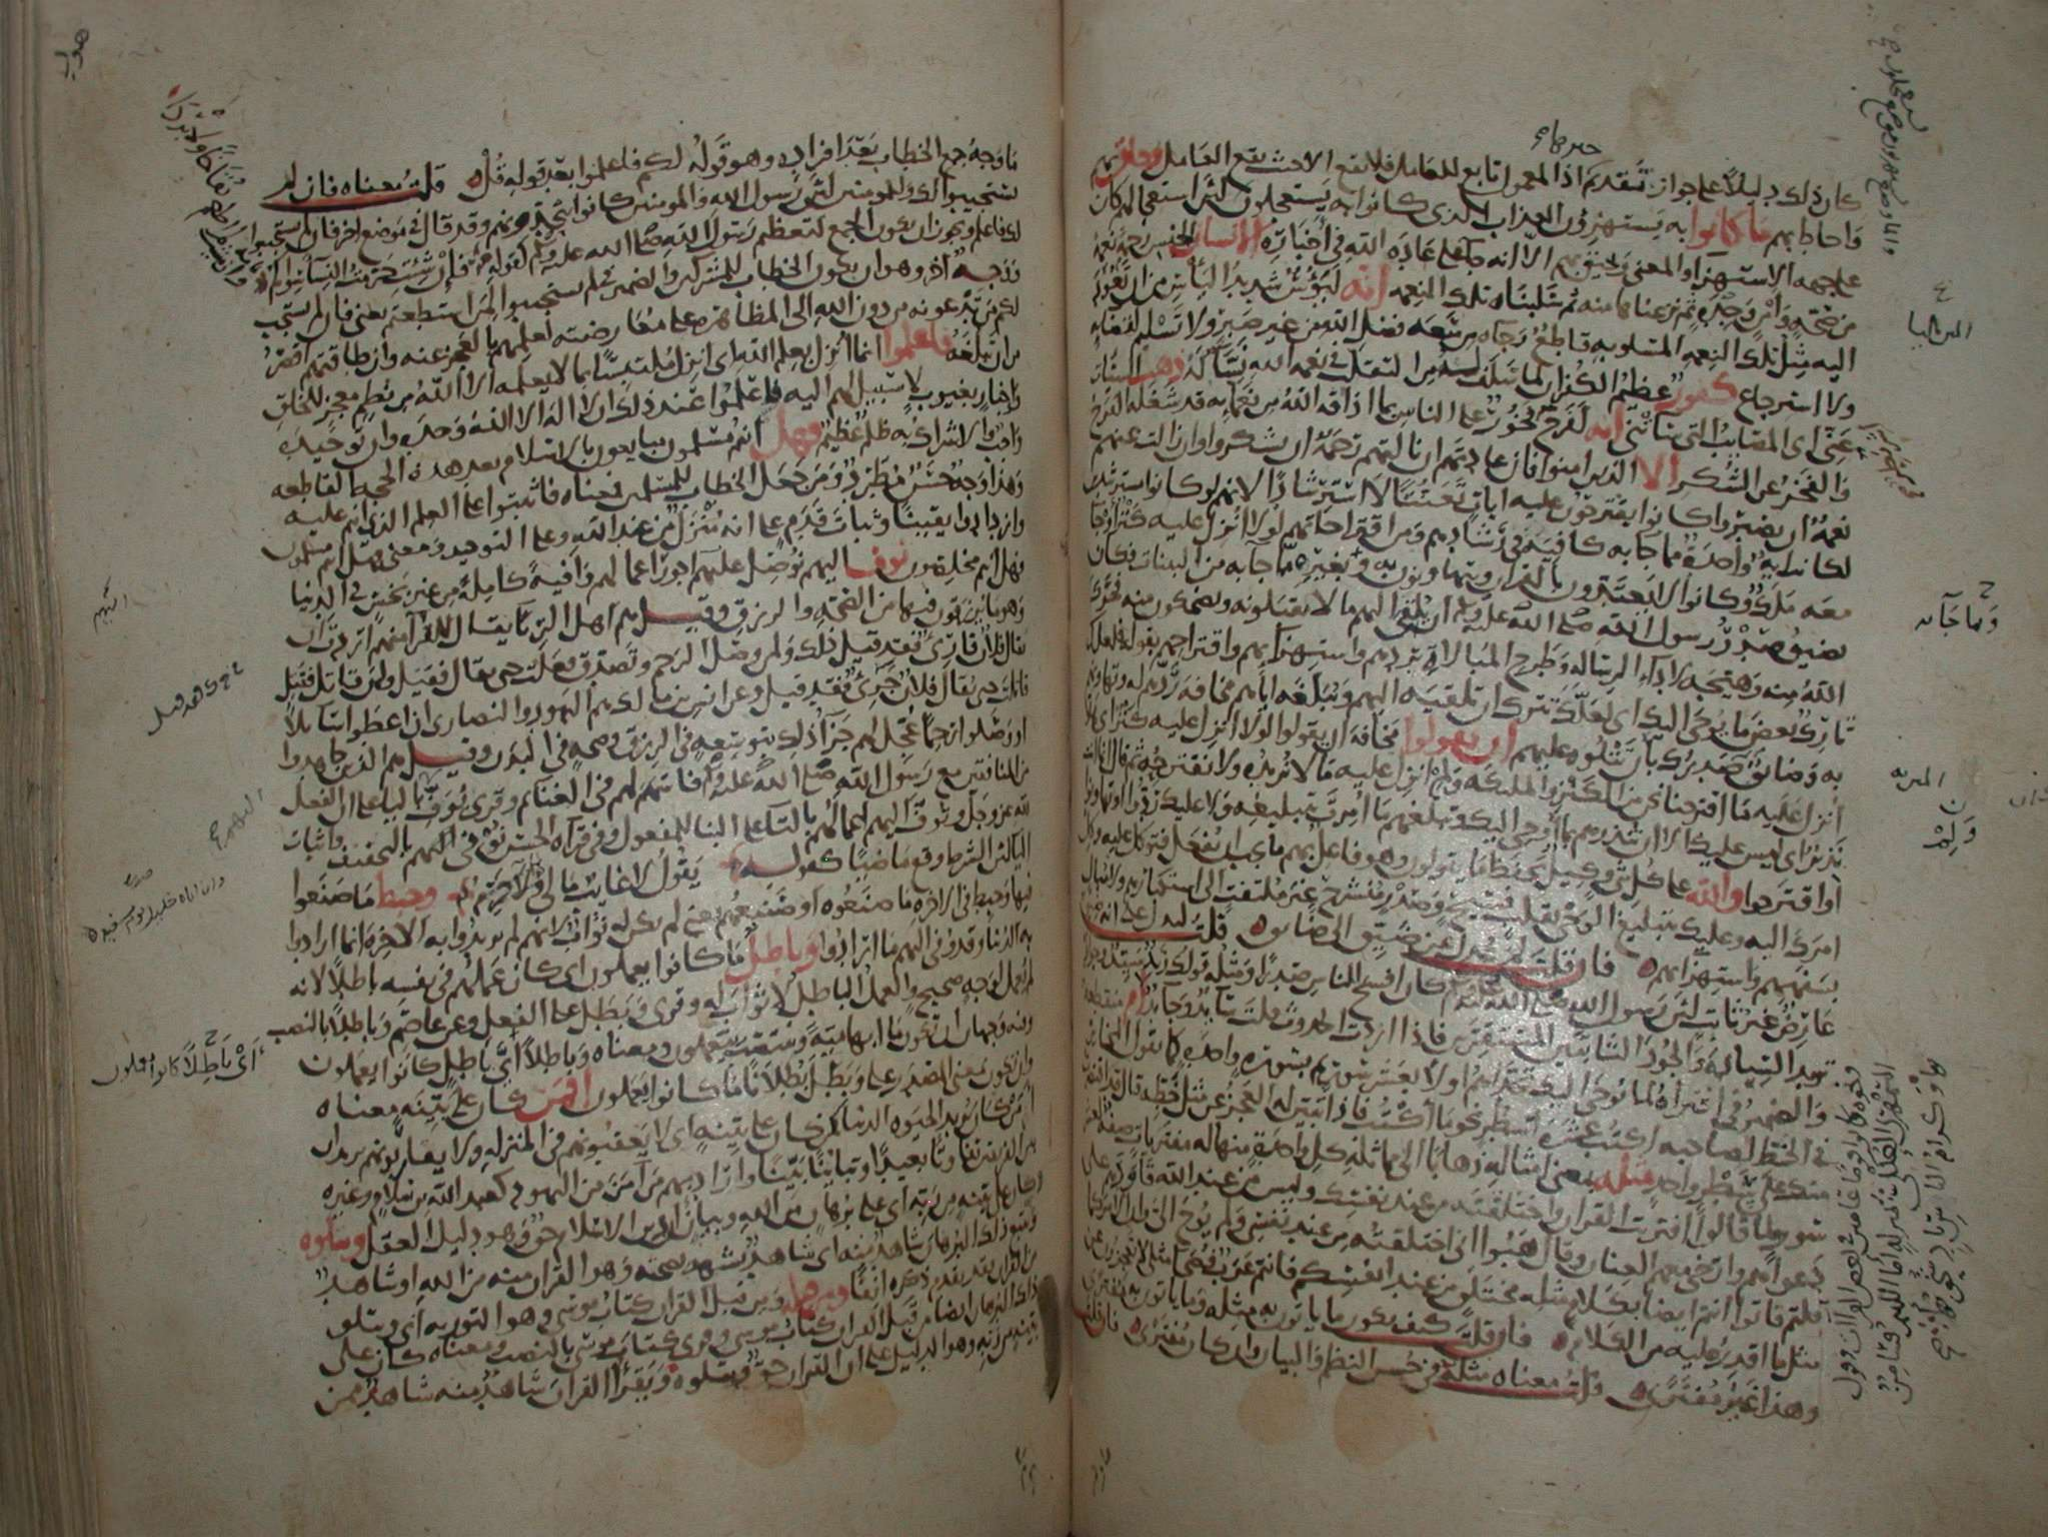 كان ذلك دليلاً على جواز تقدم اذ المعمول تابع للعامل فلا يقع الا حيث يقع العامل وحاق بهم
واحاط بهم ما كانوا به يستهزؤن العذاب الذي كانوا به يستعجلون
على جهه الاستهزا والمعنى ويحيق بهم الا انه جا على عادة الله في اخباره الانسان للجنس رحمة نعمة
من صحة وامن وجدة ثم نزعناها منه ثم سلبناه تلك النعمه انه ليؤس شديد الياس من ان تعود
اليه مثل تلك النعمه المسلوبه قاطع رجاه من سعه فضل الله من غير صبر ولا تسليم لقضائه
ولا استرجاع كفور عظيم الكفران لما سلف له من التقلب في نعمه الله نساء له ذهب السيئات
عني اى المصايب التي ساتني انه لفرح فخور على الناس بما اذاقه الله من نعمايه قد شغله الفرح
والفخر عن الشكر الا الذين امنوا فان عادتهم ان نالتهم رحمة ان يشكروا وان زالت عنهم
نعمة ان يصبروا كانوا يقترحون عليه ايات تعنتا لا استرشادا لانهم لو كانوا مسترشدين
لكانت اية واحدة مما جا به كافية في رشادهم ومن اقتراحاتهم لولا انزل عليه كنز او جا
معه ملك وكانوا لا يعتدون بالقران ويتهاونون به وبغيره مما جا به من البينات فكان
يضيق صدر رسول الله صلى الله عليه وسلم ان يلقي اليهم ما لا يقبلونه ويضحكون منه فحرك
الله منه وهيجه لاداء الرساله وطرح المبالاة بردهم واستهزائهم واقتراحهم بقوله فلعلك
تارك بعض ما يوحى اليك اى لعلك تترك ان تلقيه اليهم وتبلغه اياهم مخافة ردهم له وتهاونهم
به وضائق به صدرك بان تتلوه عليهم ان يقولوا مخافة ان يقولوا لولا انزل عليه كنز اى هلا
انزل عليه ما اقترحنا نحن من الكنز والملئكه ولم انزل عليه ما لا نريده ولا نقترحه ثم قال انما انت
نذير اى ليس عليك الا ان تنذرهم بما اوحى اليك وتبلغهم ما امرت بتبليغه ولا عليك ردوا او تهاونوا
او اقترحوا والله على كل شئ وكيل يحفظ ما يقولون وهو فاعل بهم ما يجب ان يفعل فتوكل عليه وكل
امرك اليه وعليك بتبليغ الوحي بقلب فسيح وصدر منشرح غير ملتفت الى استكبارهم ولا مبال
بسفههم واستهزائهم فان قلت لم عدل عن ضيق الى ضائق قلت ليدل على انه ضيق
عارض غير ثابت لان رسول الله صلى الله عليه وسلم كان افسح الناس صدرا ومثله قولك زيد سيد وجواد
تريد السيادة والجود الثابتين المستقرين فاذا اردت الحدوث قلت سايد وجايد ام منقطعة
والضمير في افتراه لما يوحى اليك تحداهم اولا بعشر سور ثم بسورة واحدة كما يقول المخاير
في الخط لصاحبه اكتب عشرة اسطر نحو ما اكتب فاذا تبين له العجز عن مثل خطه قال قد اقتصرت
منك على سطر واحد مثله بمعنى امثاله ذهابا الى مماثلة كل واحدة منها له مفتريات صفة لعشر
سور لما قالوا افتريت القران واختلقته من عند نفسك وليس من عند الله قاودهم على
دعواهم وارخى معهم العنان وقال هبوا اني اختلقته من عند نفسي ولم يوح الي وان الامر كما
قلتم فاتوا انتم ايضا بكلام مثله مختلق من عند انفسكم فانتم عرب فصحا مثلي لا تعجزون عن
مثل ما اقدر عليه من الكلام فان قلت كيف يكون ما ياتون به مثله وما ياتون به مفترى
وهذا غير مفترى قلت معناه مثله في حسن النظم والبيان وان كان مفترى فان قلت
ما وجه جمع الخطاب بعد افراده وهو قوله لكم فاعلموا بعد قوله قل قلت معناه فان لم
يستجيبوا لك وللمومنين لان رسول الله والمومنين كانوا يتحدونهم وقد قال في موضع اخر فان لم يستجيبوا
لك فاعلم ويجوز ان يكون الجمع لتعظيم رسول الله صلى الله عليه وسلم كقوله فان شئت حرمت النسا سواكم
ووجه اخر وهو ان يكون الخطاب للمشركين والضمير في لم يستجيبوا لمن استطعتم يعني فان لم يستجب
لكم من تدعونه من دون الله الى المظاهرة على معارضته لعلمهم بالعجز عنه وان طاقتهم اقصر
من ان تبلغه فاعلموا انما انزل بعلم الله اى انزل ملتبسا بما لا يعلمه الا الله من نظم معجز للخلق
واخبار بغيوب لا سبيل لهم اليه واعلموا عند ذلك ان لا اله الا الله وحده وان توحيده
واجب والاشراك به ظلم عظيم فهل انتم مسلمون مبايعون بالاسلام بعد هذه الحجة القاطعه
وهذا وجه حسن مطرد ومن جعل الخطاب للمسلمين فمعناه فاثبتوا على العلم الذي انتم عليه
وازدادوا يقينا وثبات قدم على انه منزل من عند الله وعلى التوحيد ومعنى فهل انتم مسلمون
فهل انتم مخلصون نوف اليهم نوصل عليهم اجور اعمالهم وافية كاملة من غير بخس في الدنيا
وهو ما يرزقون فيها من الصحة والرزق وقيل هم اهل الريا يقال للقرا منهم اردت ان
يقال فلان قارئ فقد قيل ذلك ولمن وصل الرحم وتصدق فعلت حتى يقال فقيل ولمن قاتل فقتل
قاتلت حتى يقال فلان جرئ فقد قيل وعن انس بن مالك هم اليهود والنصارى ان اعطوا سائلا
او وصلوا رحما عجل لهم جزا ذلك بتوسعه في الرزق وصحة في البدن وقيل هم الذين جاهدوا
من المنافقين مع رسول الله صلى الله عليه وسلم فاسهم لهم في الغنائم وقرى يوف باليا على ان الفعل
لله عز وجل وتوف اليهم اعمالهم بالتا على البنا للمفعول وفي قراة الحسن نوفي اليهم بالتخفيف واثبات
اليا لان الشرط وقع ماضيا كقوله يقول لا غايب مالي ولا حرم وحبط ما صنعوا
فيها وحبط في الاخرة ما صنعوه او صنيعهم يعني لم يكن له ثواب لانهم لم يريدوا به الاخرة انما ارادوا
به الدنيا وقد وفى اليهم ما ارادوا وباطل ما كانوا يعملون اى كان عملهم في نفسه باطلا لانه
لم يعمل لوجه صحيح والعمل الباطل لا ثواب له وقرى وبطل على الفعل وعن عاصم وباطلا بالنصب
وفيه وجهان ان تكون ما ابهامية وينتصب بيعملون ومعناه وباطلا اى باطل كانوا يعملون
وان تكون بمعنى المصدر على وبطل بطلانا ما كانوا يعملون افمن كان على بينه معناه
امن كان يريد الحيوه الدنيا كمن كان على بينه اى لا يعقبونهم في المنزله ولا يقاربونهم يريد ان
بين الفريقين تفاوتا بعيدا وتباينا بينا واراد بهم من آمن من اليهود كعبد الله بن سلام وغيره
كان على بينه من ربه اى على برهان من الله وبيان ان دين الاسلام حق وهو دليل العقل ويتلوه
ويتبع ذلك البرهان شاهد منه اى شاهد يشهد بصحته وهو القران منه من الله او شاهد
من القران فقد تقدم ذكره انفا ومن قبله ومن قبل القران كتاب موسى وهو التورية اى ويتلو
ذلك البرهان ايضا من قبل القران كتاب موسى وقرى كتاب موسى بالنصب ومعناه كان على
بينه من ربه وهو الدليل على ان القران حق ويتلوه ويقرأ القران شاهد منه شاهد ممن
وما جآ به
اليهم
اى باطلا كانوا يعملون